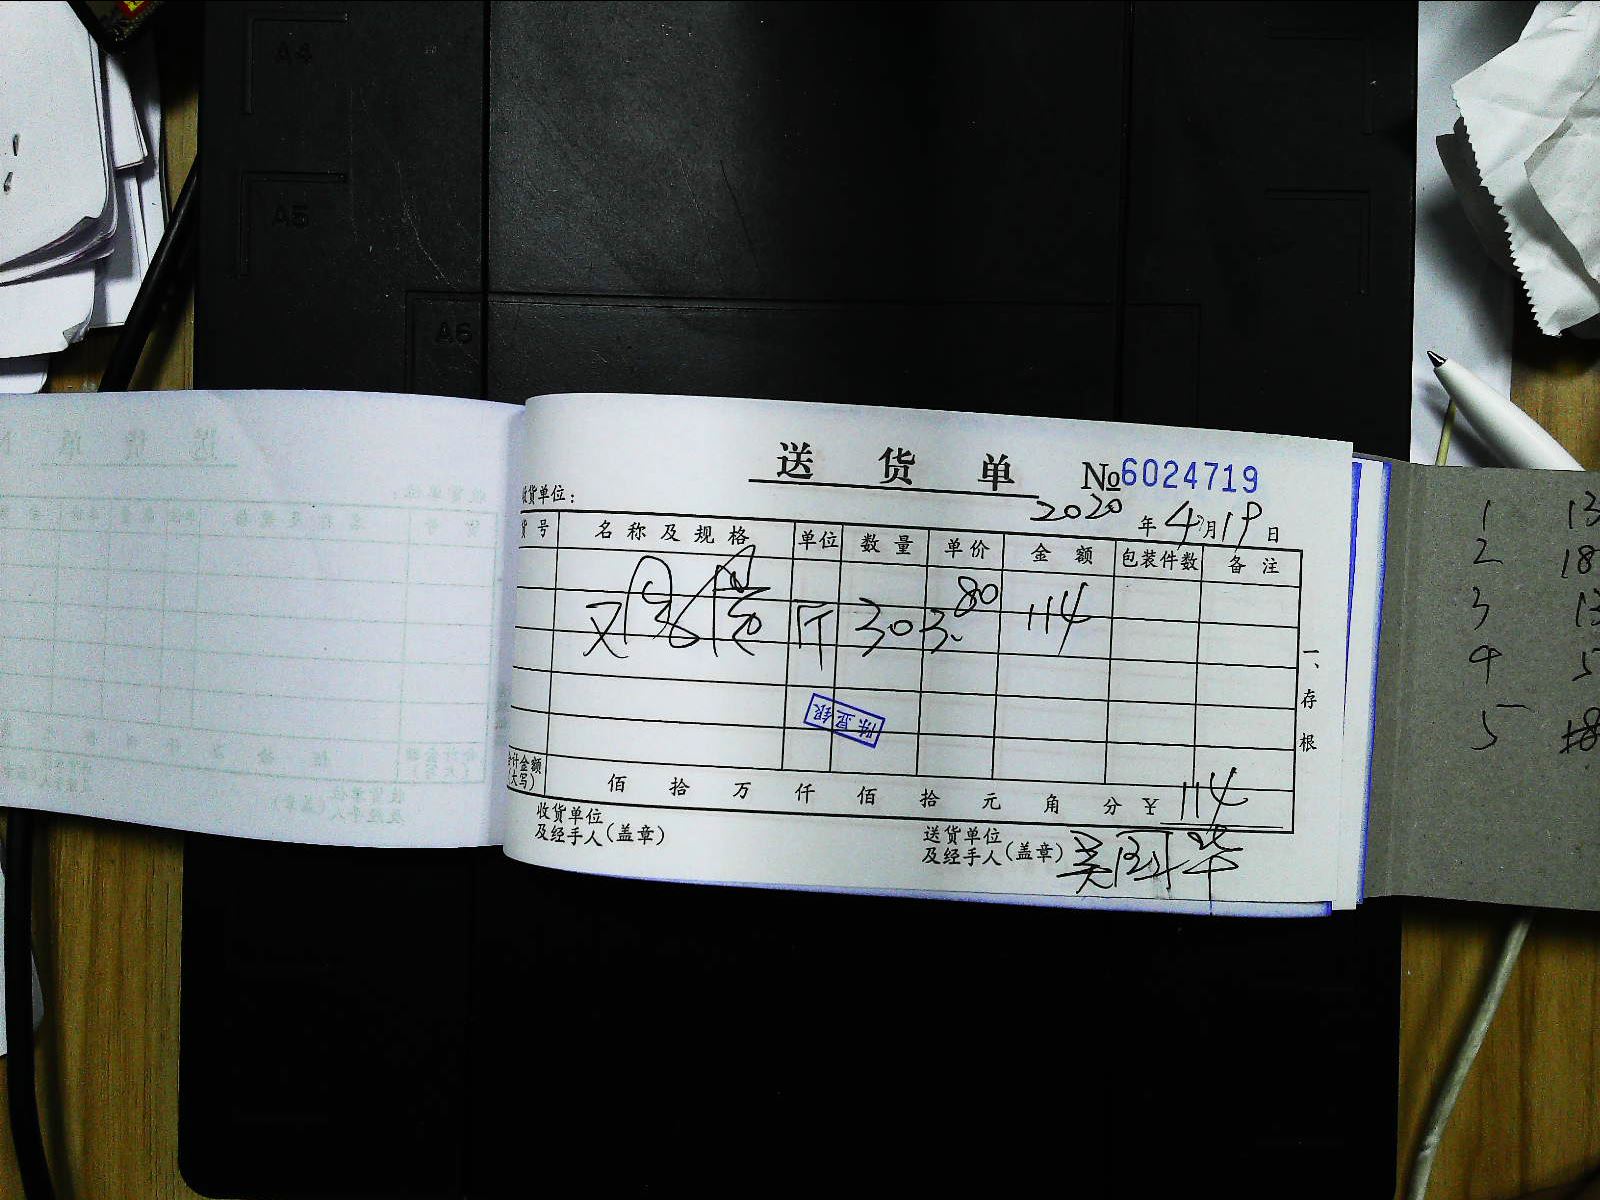 A4
A5
A6
送货单 №6024719
收货单位:
2020年4月19日
货号 名称及规格 单位 数量 单价 金额 包装件数 备注
斤 30 3.80 114
一、存根
合计金额(大写) 佰 拾 万 仟 佰 拾 元 角 分 ¥ 114
收货单位及经手人(盖章)
送货单位及经手人(盖章) 吴国华
1 13
2 18
3 13
4 5
5